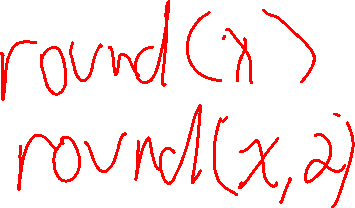 round(x)
round(x,2)